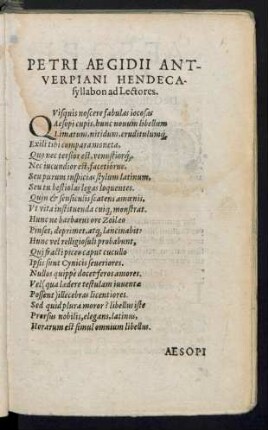 PETRI AEGIDII ANT-
VERPIANI HENDECA-
syllabon ad Lectores.
QVisquis noscere fabulas iocosas
Aesopi cupis, hunc nouum libellum
Limatum, nitidum, eruditulumq́;
Exili tibi compara moneta.
Quo nec tersius est, venustiusq́;,
Nec iucundior est, facetiorue.
Seu purum inspicias stylum latinum,
Seu tu bestiolas legas loquentes.
Quum & sensiculis scatens amœnis,
Vt vita instituenda cuiq; monstrat.
Huncne barbarus ore Zoilus
Pinset, deprimet, atq; lancinabit?
Hunc vel relligiosuli probabunt,
Qui fracti piceo caput cucullo
Ipsis sunt Cynicis seueriores.
Nullos quippe docet feros amores.
Vel qua lædere testulam iuuentæ
Possent illecebras licentiores.
Sed quid plura moror? libellus iste
Prorsus nobilis, elegans, latinus,
Horarum est simul omnium libellus.
AESOPI